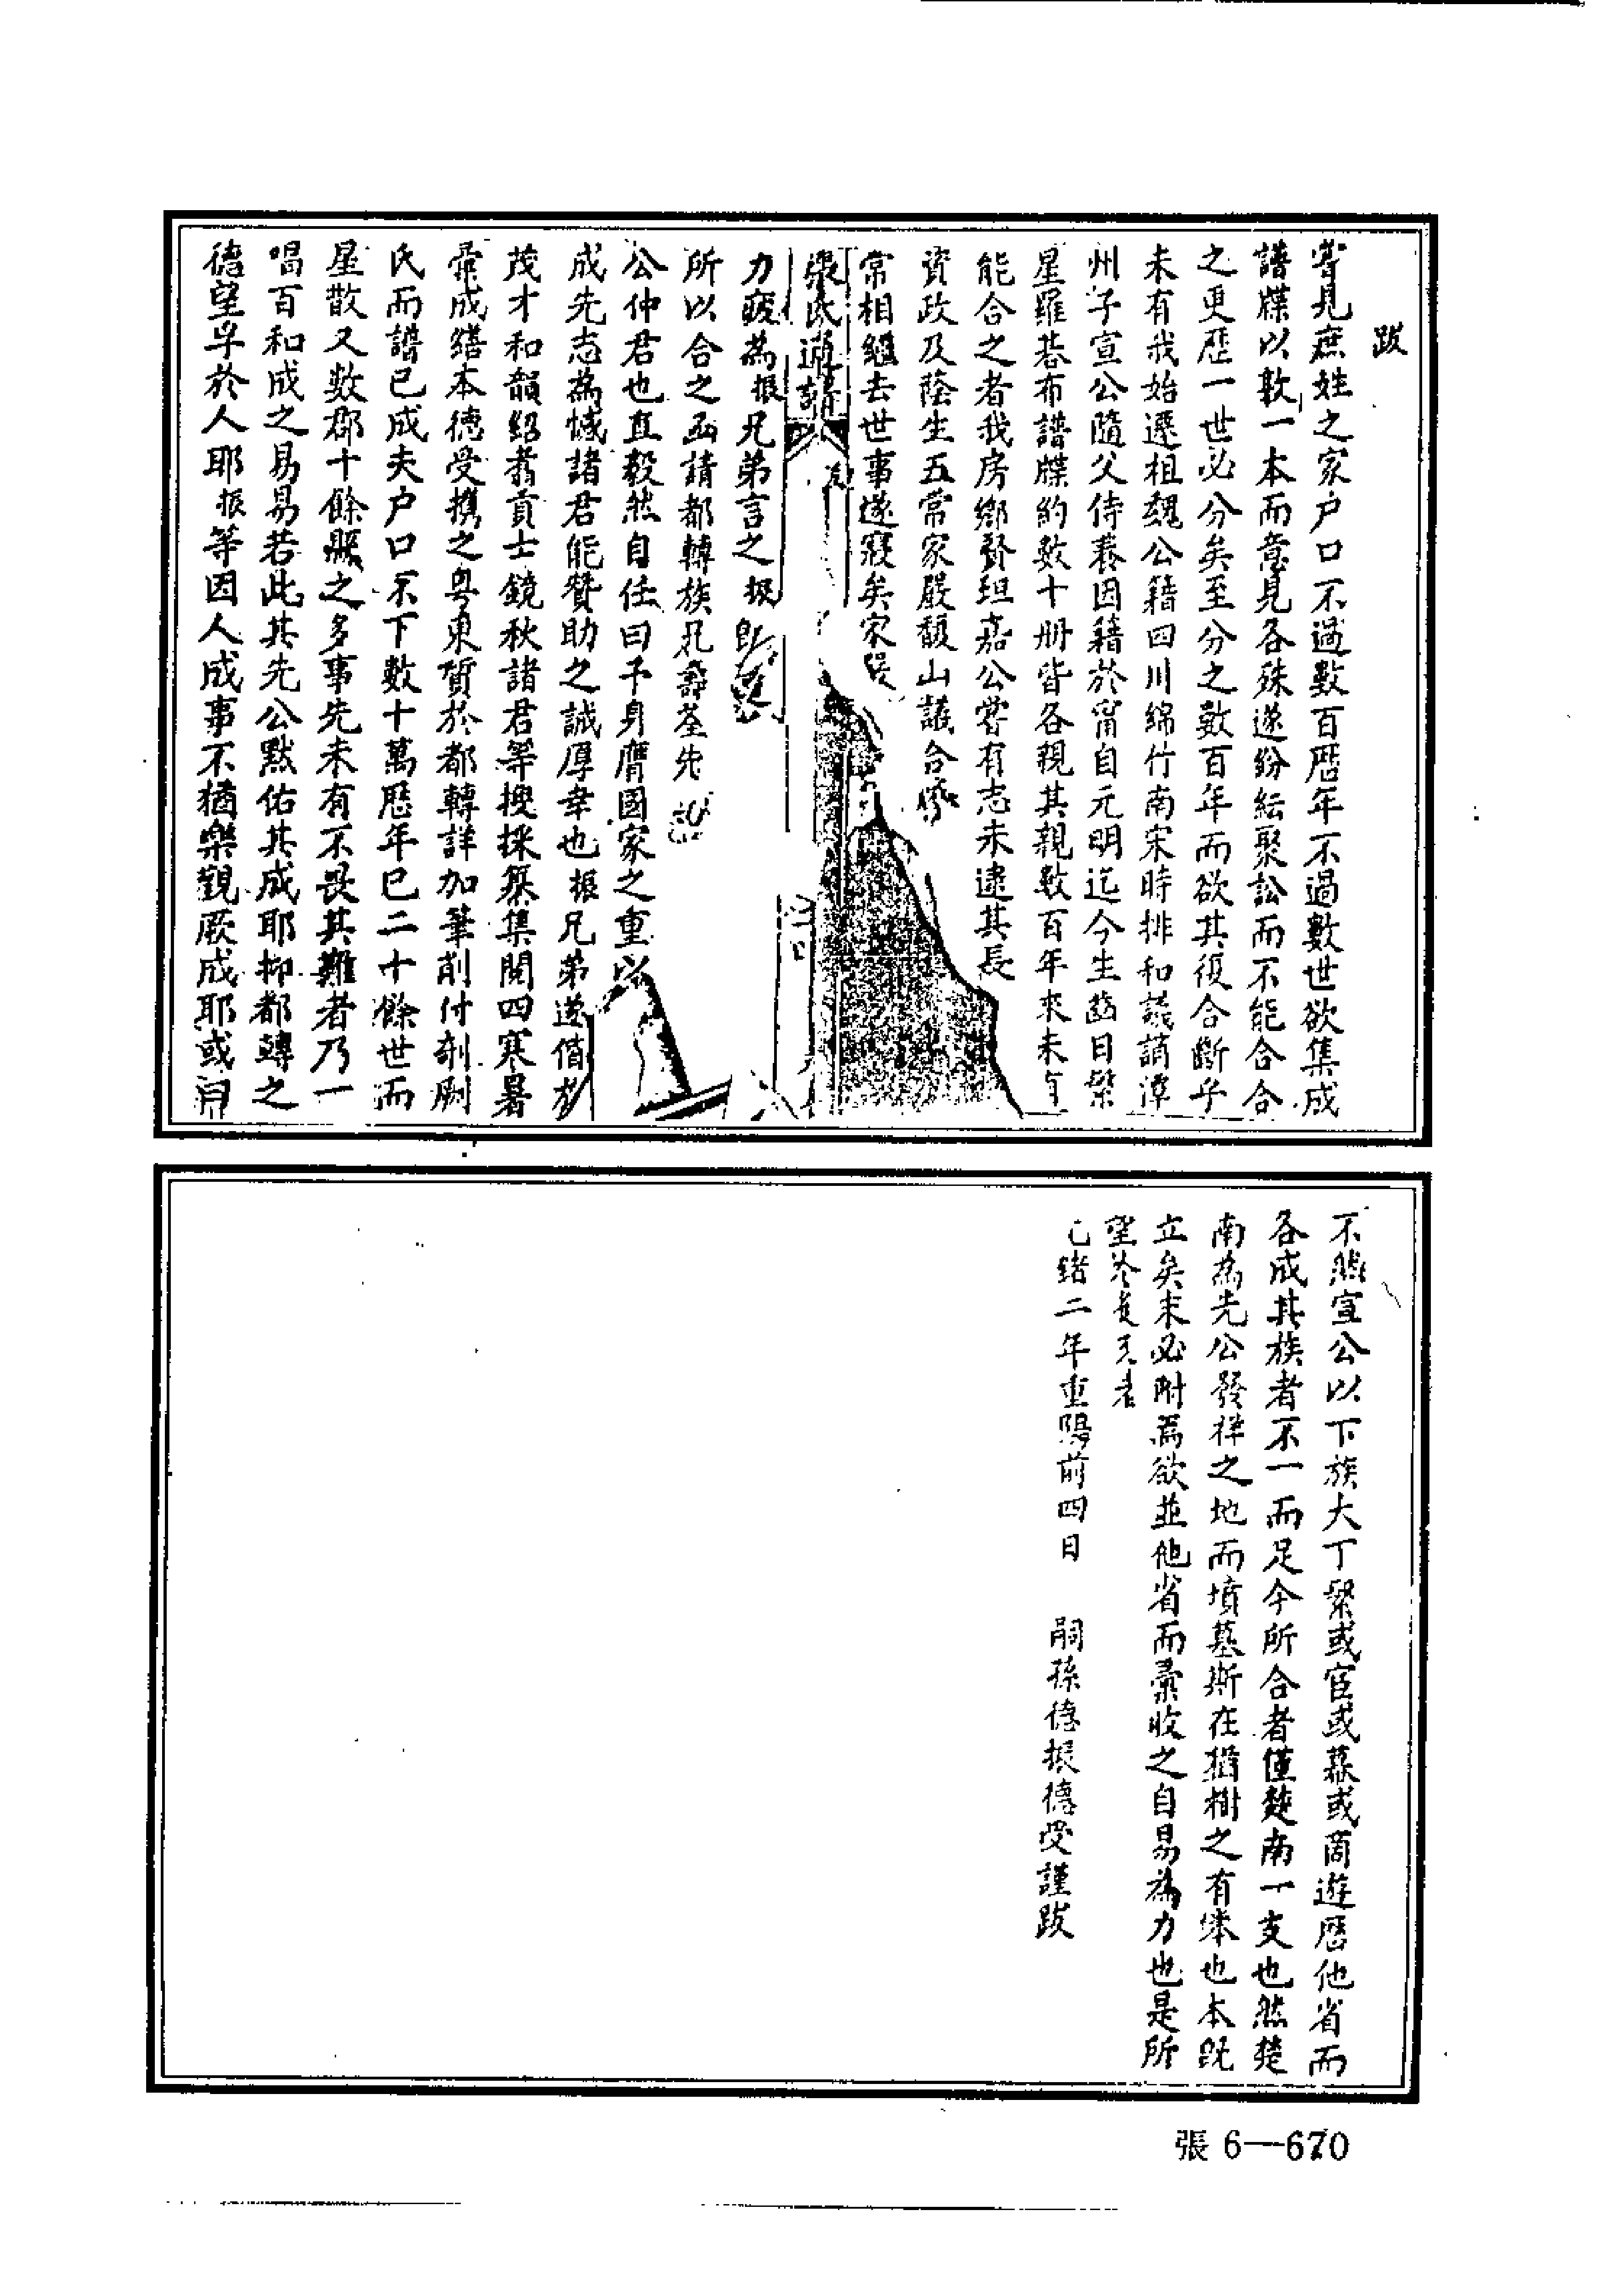 跋
嘗見庶姓之家户口不過數百歴年不過數世欲集成
譜牒以敦一本而意見各殊遂紛紜聚訟而不能合合
之更歴一世必分矣至分之數百年而欲其復合斷乎
未有我始遷祖魏公籍四川綿竹南宋時排和議謫潭
州子宣公隨父侍養因籍於甯自元明迄今生齒日繁
星羅碁布譜牒約數十册皆各親其親數百年來未有
能合之者我房鄉賢珇嘉公嘗有志未逮其長
資政及蔭生五常家嚴馥山議合
常相繼去世事遂寢矣宋
張氏通譜
力疲為振兄弟言之振
所以合之函請都轉族兄壽荃先
公仲君也直毅然自任曰予身膺國家之重
成先志為憾諸君能贊助之誠厚幸也振兄弟遂偕
茂才和韻紹翥貢士鏡秋諸君等搜採纂集閱四寒暑
彙成繕本德受携之粤東質於都轉詳加筆削付剞劂
氏而譜已成夫户口不下數十萬歴年已二十餘世而
星散又數郡十餘縣之多事先未有不畏其難者乃一
唱百和成之易易若此其先公默佑其成耶抑都轉之
德望孚於人耶振等因人成事不猶樂觀厥成耶或有
不然宣公以下族大丁繁或官或幕或商遊歴他省而
各成其族者不一而足今所合者僅楚南一支也然楚
南為先公發祥之地而墳墓斯在猶樹之有本也本既
立矣末必附焉欲並他省而彙收之自易為力也是所
望於後之者
緒二年重陽前四日 嗣孫德振德受謹跋
張 6—670